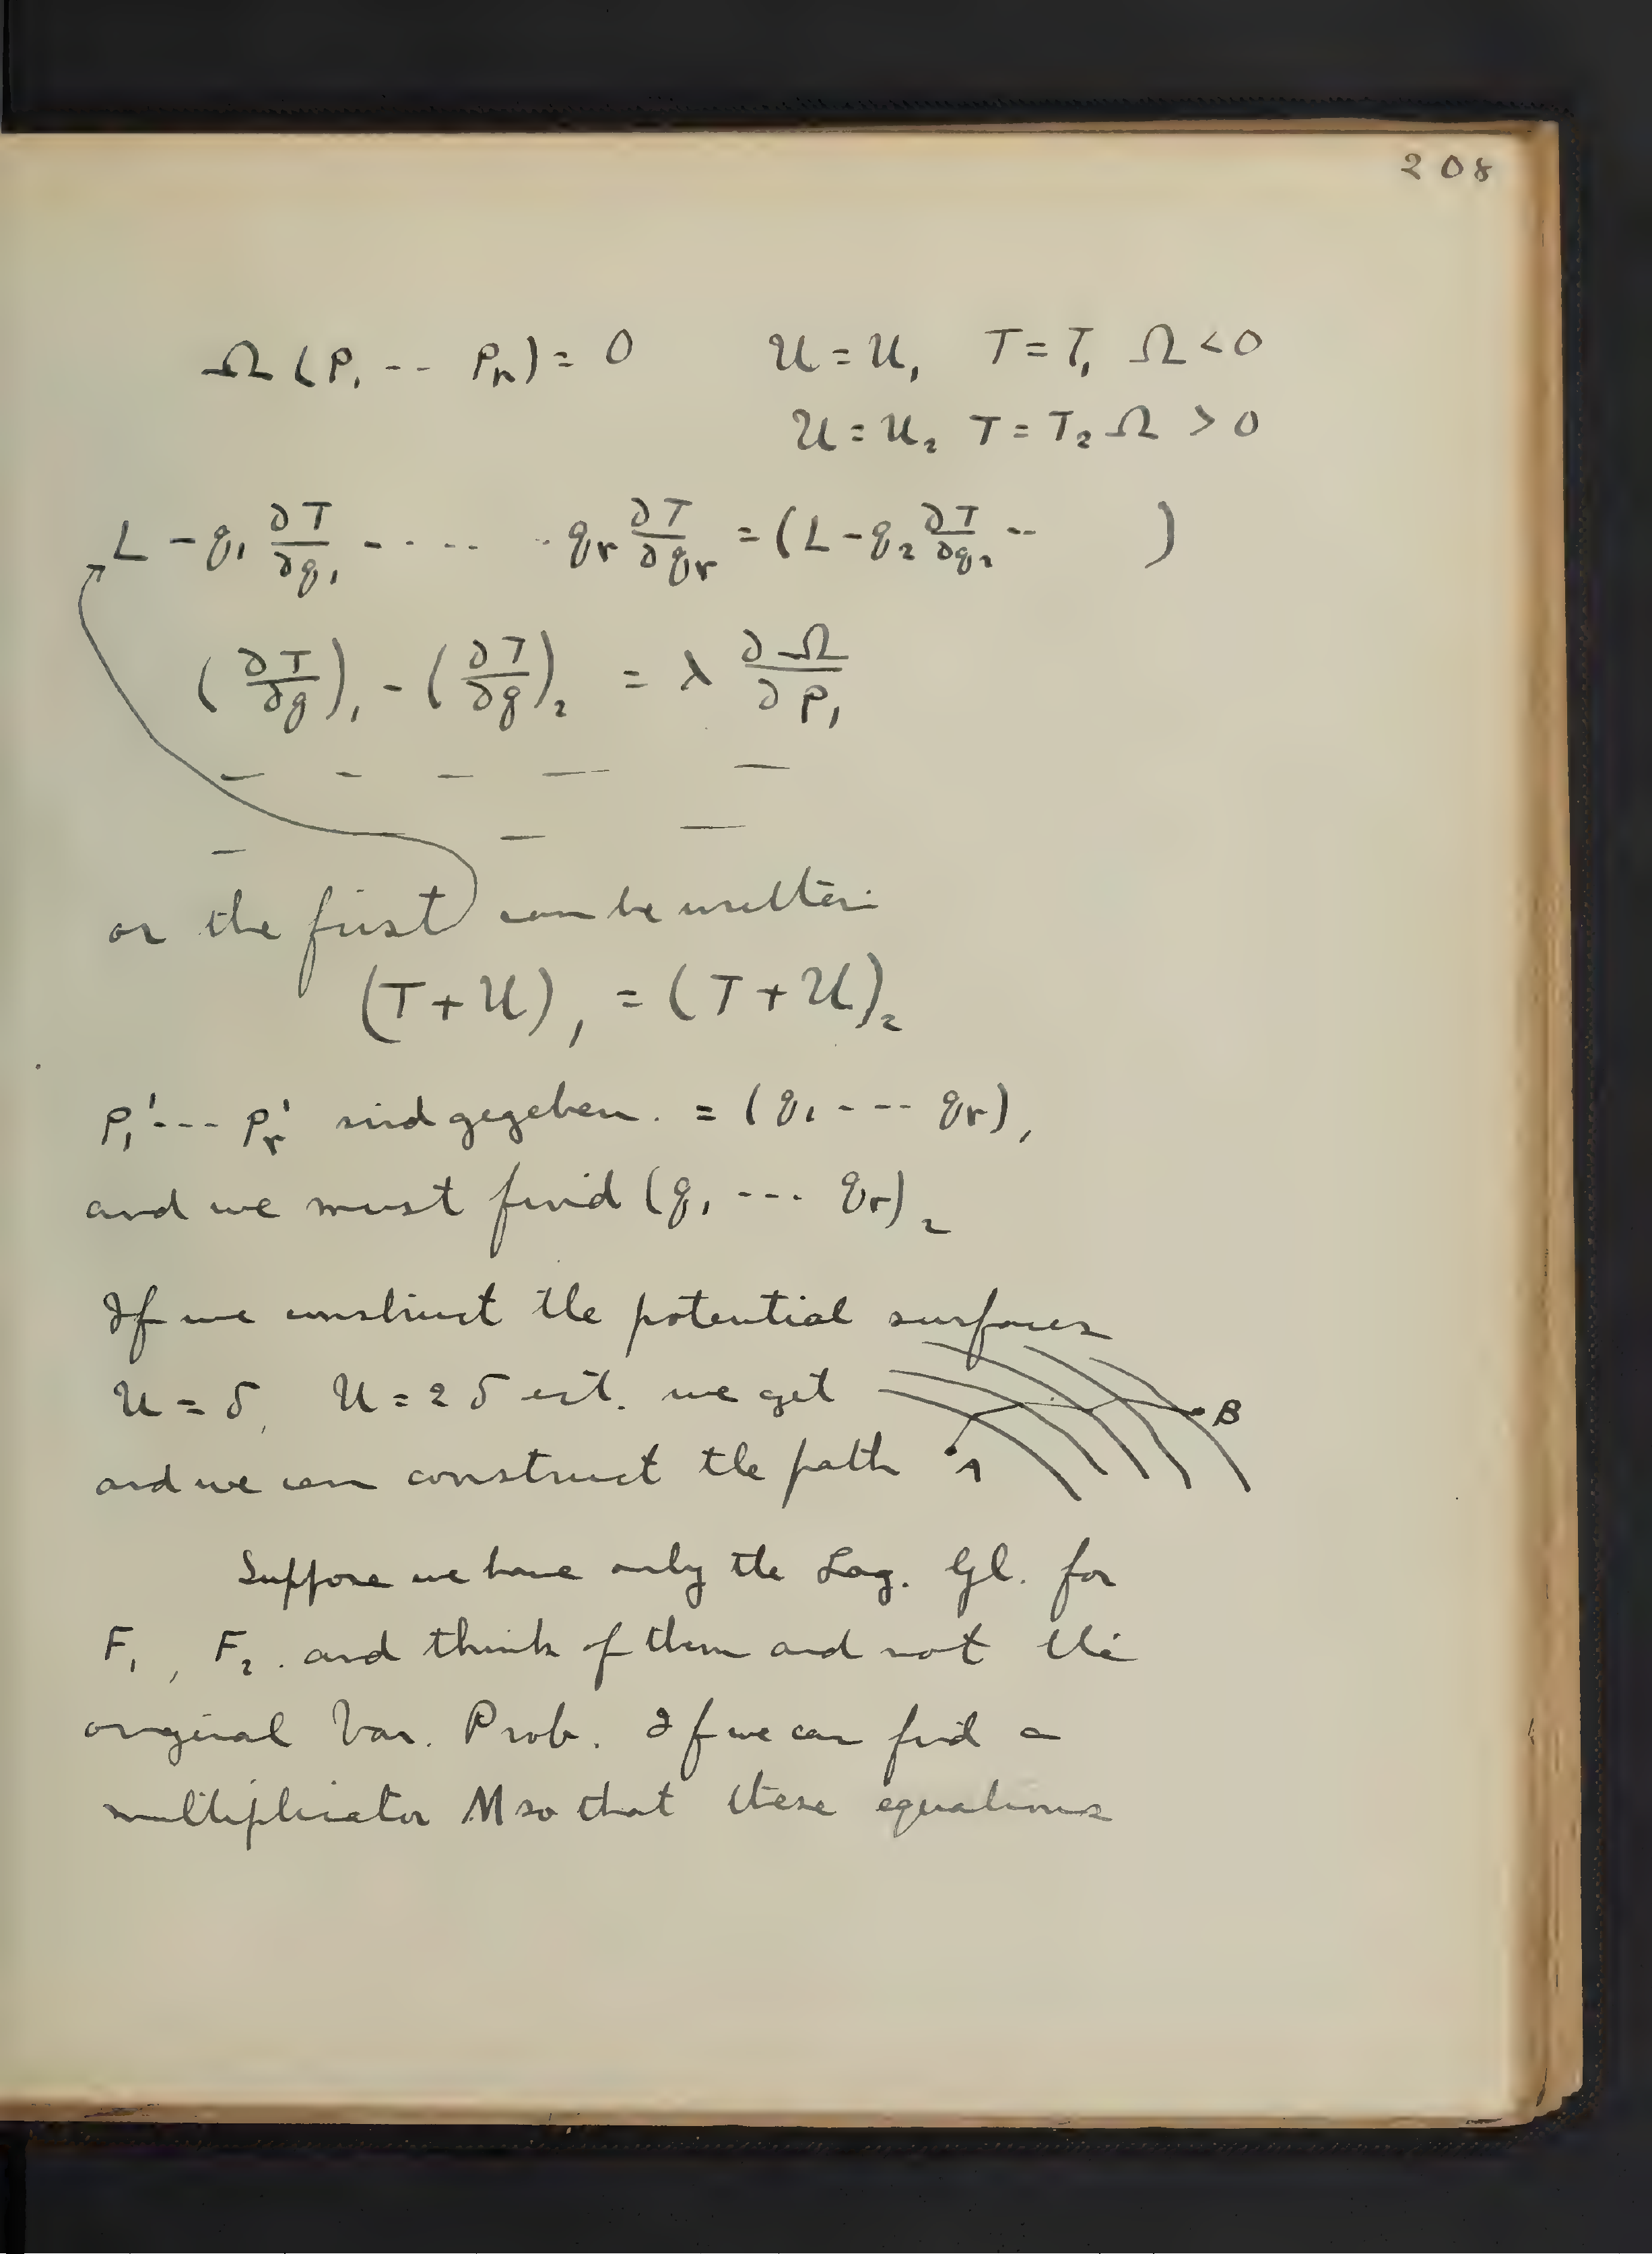 208
Ω(p₁ -- pₙ) = 0   U = U₁   T = T₁   Ω < 0
U = U₂   T = T₂   Ω > 0
L - q₁ ∂T/∂q₁ - ---- - qᵣ ∂T/∂qᵣ = (L - q₂ ∂T/∂q₂ --   )
(∂T/∂q)₁ - (∂T/∂q)₂ = λ ∂Ω/∂p₁
— — — — —
— — —
or the first can be written
(T+U)₁ = (T+U)₂
p₁' --- pᵣ' sind gegeben. = (q₁ --- qᵣ)₁
and we must find (q₁ --- qᵣ)₂
If we construct the potential surfaces
U = δ, U = 2δ ect. we get
B
and we can construct the path
A
Suppose we have only the Lag. Gl. for
F₁, F₂. and think of them and not the
original Var. Prob. If we can find a
multiplicator M so that these equations